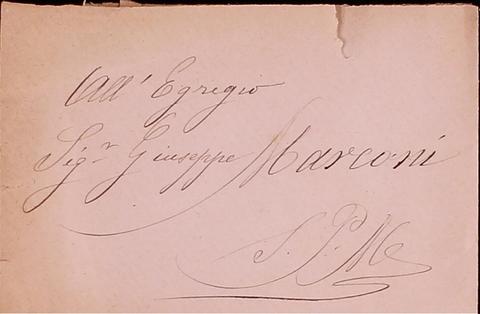 All' Egregio
Sigr Giuseppe Marconi
S. P. M.